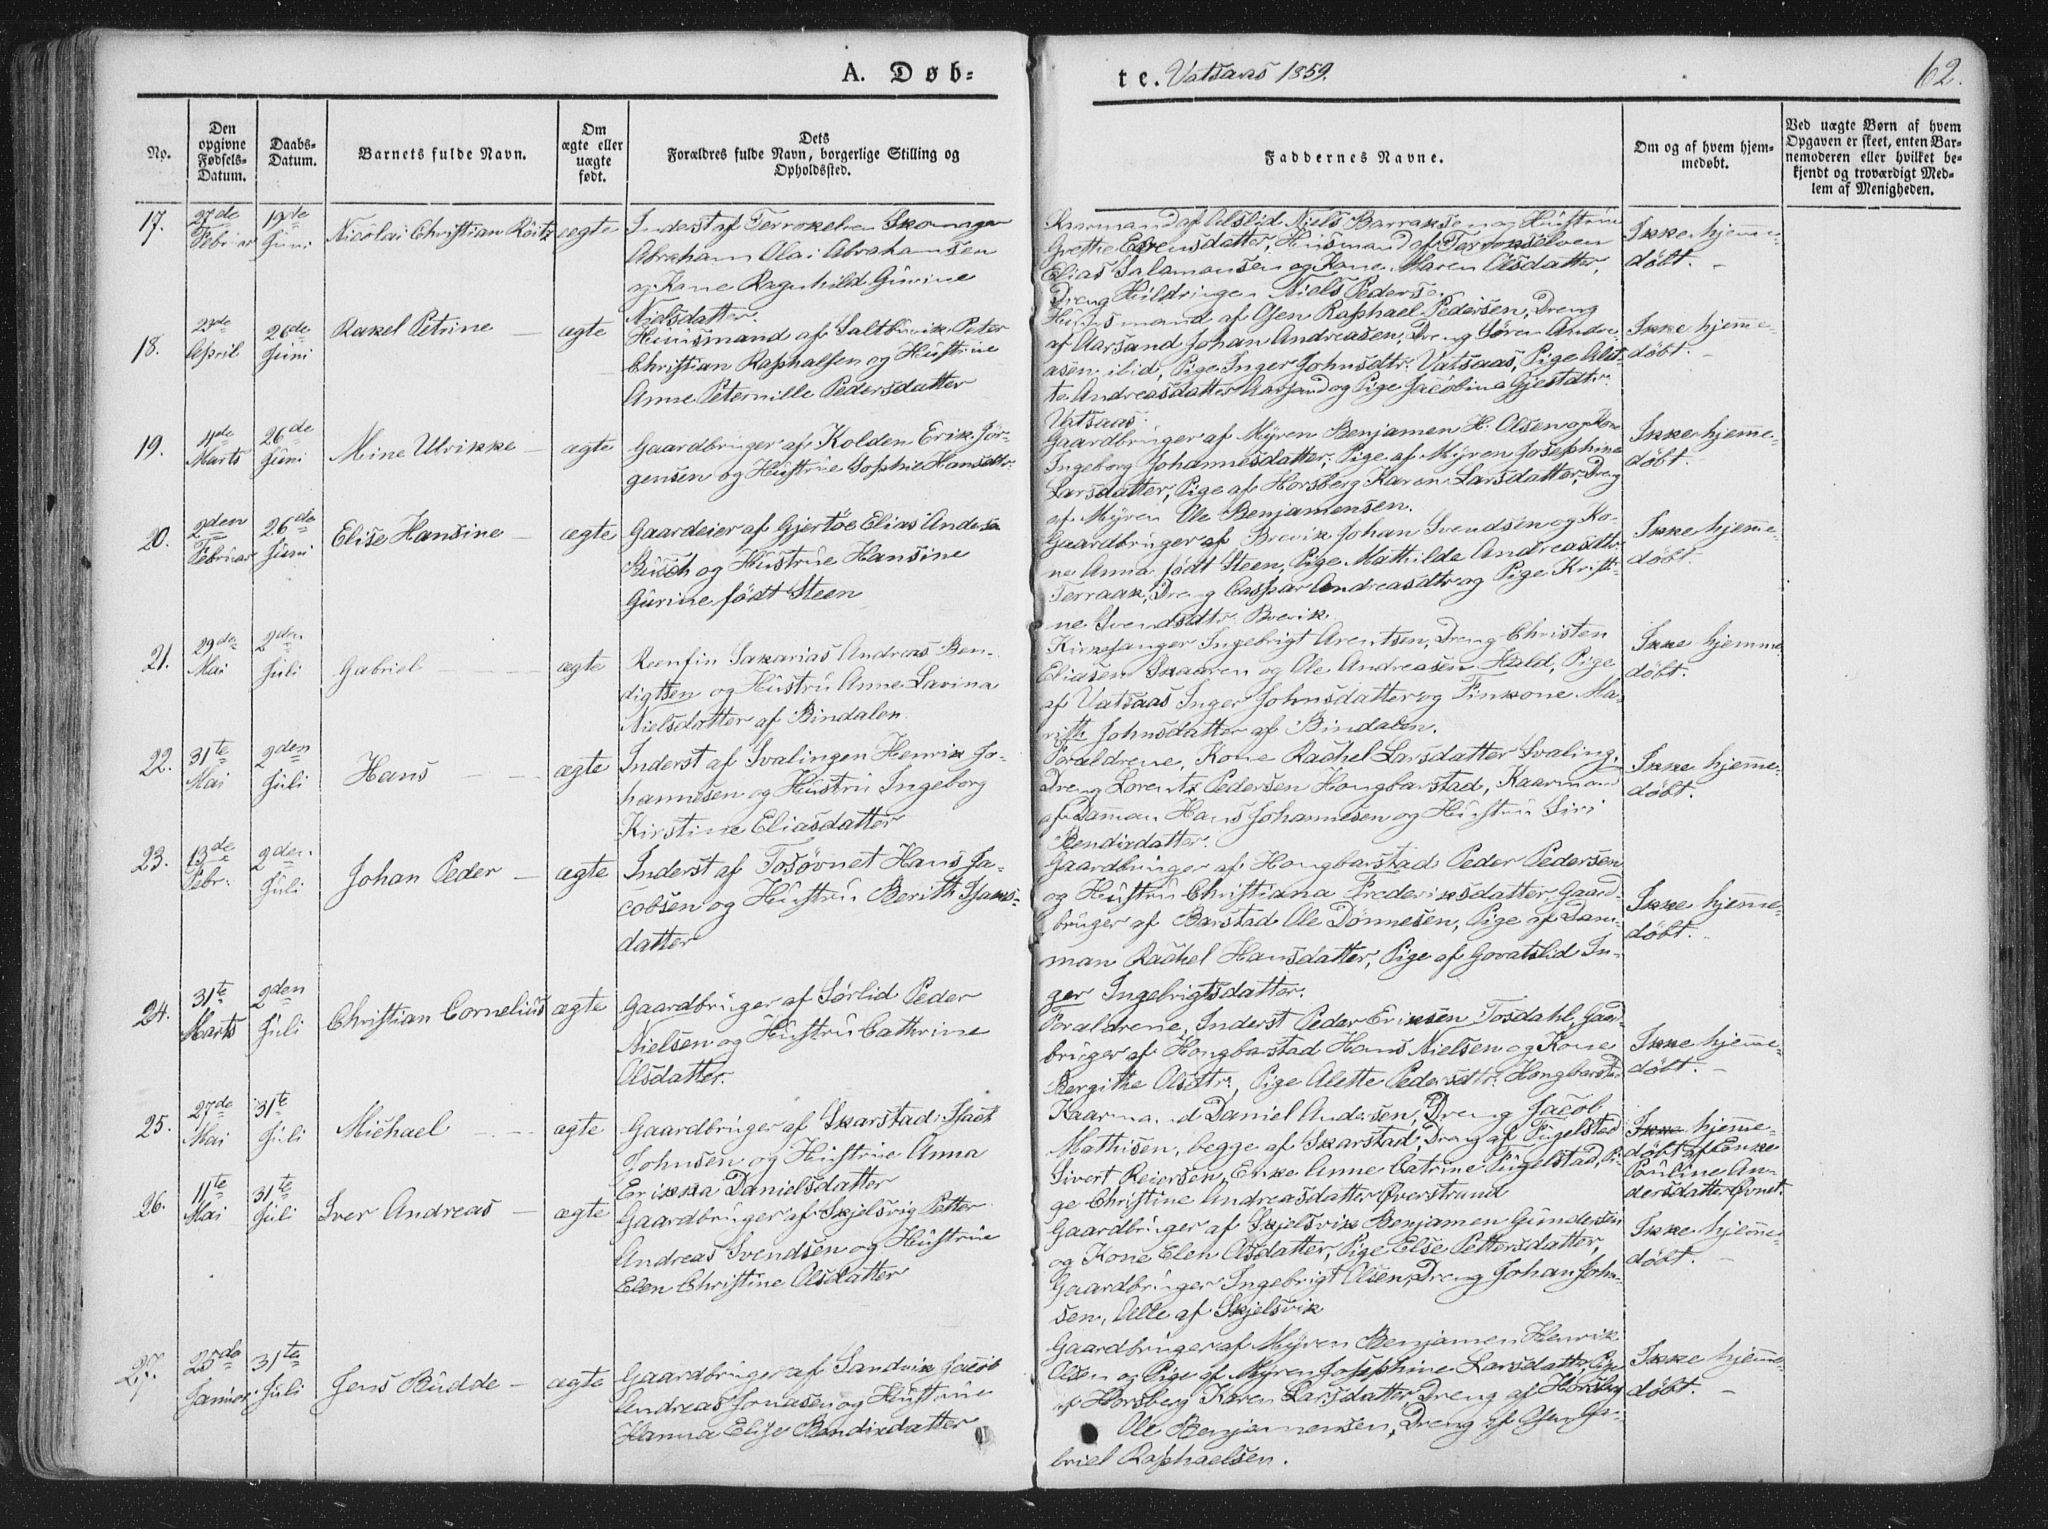 A. Døb-
te. Vatsaas 1859.
62.
No.
Den opgivne Fødsels-Datum.
Daabs-Datum.
Barnets fulde Navn.
Om ægte eller uægte født.
Dets Forældres fulde Navn, borgerlige Stilling og Opholdssted.
Faddernes Navne.
Om og af hvem hjemmedøbt.
Ved uægte Børn af hvem Opgaven er skeet, enten Barnemoderen eller hvilket bekjendt og troværdigt Medlem af Menigheden.
17.
27de Februar
19de Juni
Nicolai Christian
ægte
Inderst af Skomager
Abraham Olai Abrahamsen
og Kone Ragnhild Gurine
Nielsdatter.
Kaarmand af Niels og Hustrue
Grethe datter, Husmand af
Elias Salamonsen og Kone Maren Olsdatter,
Dreng Hildringen Niels Pedersen
Ikke hjemme-
døbt.
18.
23de April
26de Juni
Rakel Petrine
ægte
Huusmand af Saltbuvik Peter
Christian Raphalsen og Hustrue
Anne Peternille Pedersdatter
Huusmand af Osen Raphael Pedersen, Dreng
af Aarsand Johan Andreasen, Dreng Søren Andre-
asen ibid, Pige Inger Johnsdtr. Vatsaas, Pige Alet-
te Andreasdatter Aarsand og Pige Jacobina Gjestdtr.
Vatsaas.
Ikke hjemme-
døbt.
19.
4de Marts
26de Juni
Mine Ulrikke
ægte
Gaardbruger af Kolden Erik Jør-
gensen og Hustrue Sophie Hansdtr.
Gaardbruger af Myren Benjamen H. Olsen og Kone
Ingeborg Johannesdatter, Pige af Myren Josephine
Larsdatter, Pige af Horsberg Karen Larsdatter, Dreng
af Myren Ole Benjamensen.
Ikke hjemme-
døbt.
20.
2den Februar
26de Juni
Elise Hansine
ægte
Gaardeier af Gjertøe Elias Anders
Busch og Hustrue Hansine
Gurine født Steen
Gaardbruger af Brevik Johan Svendsen og Ko-
ne Anna født Steen, Pige Mathilde Andreasdtr.
Terraak, Dreng Caspar Andreasdtr og Pige Kristi-
ne Svendsdtr. Brevik
Ikke hjemme-
døbt.
21.
29de Mai
2den Juli
Gabriel
ægte
Reenfin Sakarias Andreas Ben-
digtsen og Hustru Anne Lavina
Nielsdatter af Bindalen
Kirkesanger Ingebrigt Arentsen, Dreng Christen
Eliasen Skaaren og Ole Andreasen Hald, Pige
af Vatsaas Inger Johnsdatter og Finkone Ma-
rith Johnsdatter af Bindalen.
Ikke hjemme
døbt.
22.
31te Mai
2den Juli
Hans
ægte
Inderst af Svalingen Henrik Jo-
hannesen og Hustru Ingeborg
Kirstine Eliasdatter
Foraldrene, Kone Rachel Larsdatter Svaling,
Dreng Lorents Pedersen Hongbarstad, Kaarmand
af Damman Hans Johannesen og Hustru Siri
Bendixdatter.
Ikke hjemme-
døbt.
23.
13de Febr.
2den Juli
Johan Peder
ægte
Inderst af Tosøvnet Hans Ja-
cobsen og Hustru Berith Isaks-
datter
Gaardbruger af Hongbarstad Peder Pedersen
og Hustru Christiana Frederiksdatter, Gaard-
bruger af Barstad Ole Dønnesen, Pige af Dam-
man Rachel Hansdatter, Pige af Govatslid In-
ger Ingebrigtsdatter.
Ikke hjemme-
døbt.
24.
31te Marts
2den Juli
Christian Cornelius
ægte
Gaardbruger af Sørlid Peder
Nielsen og Hustru Cathrine
Olsdatter.
Foraldrene, Inderst Peder Eriksen Tosdahl, Gaard-
bruger af Hongbarstad Hans Nielsen og Kone
Bergithe Olsdtr., Pige Alette Pedersdtr. Hongbarstad
Ikke hjemme-
døbt.
25.
27de Mai
31te Juli
Michael
ægte
Gaardbruger af Skarstad Isach
Johnsen og Hustrue Anna
Erikka Danielsdatter
Kaarmand Daniel Andersen, Dreng Jacob
Mathisen, begge af Skarstad, Dreng af Fugelstad
Sivert Reiersen, Enke Anne Catrine Fugelstad, Pi-
ge Christine Andreasdatter Øverstrand
Ikke hjemme-
døbt af Enke
Pauline An-
dersdatter
26.
11te Mai
31te Juli
Iver Andreas
ægte
Gaardbruger af Skjelsvig Petter
Andreas Svendsen og Hustrue
Elen Christine Olsdatter
Gaardbruger af Skjelsvik Benjamen Gundersen
og Kone Elen Olsdatter, Pige Else Pettersdatter,
Gaardbruger Ingebrigt Olsen, Dreng Johan John-
sen, Alle af Skjelsvik
Ikke hjemme-
døbt.
27.
25de Januar
31te Juli
Jens Budde
ægte
Gaardbruger af Sandvik Jacob
Andreas Jonasen og Hustrue
Hanna Elise Bendixdatter
Gaardbruger af Myren Benjamen Henrik
Olsen og Pige af Myren Josephine Larsdatter, Pige
af Horsberg Karen Larsdatter, Dreng af Horsberg
Ole Benjamensen, Dreng af Osen Ga-
briel Raphaelsen.
Ikke hjemme-
døbt.